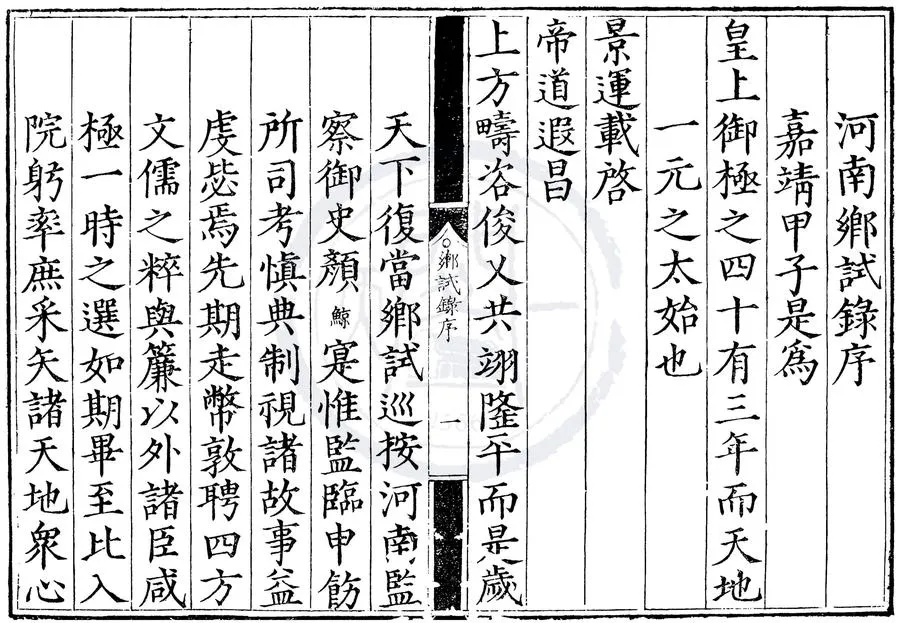 河南鄉試錄序
嘉靖甲子是爲
皇上御極之四十有三年而天地
一元之太始也
景運載啓
帝道遐昌
上方疇咨俊乂共翊隆平而是歲
鄉試錄序
一
天下復當鄉試巡按河南監
察御史顏鯨寔惟監臨申飭
所司考愼典制視諸故事益
虔毖焉先期走幣敦聘四方
文儒之粹與簾以外諸臣咸
極一時之選如期畢至比入
院躬率庶采矢諸天地眾心